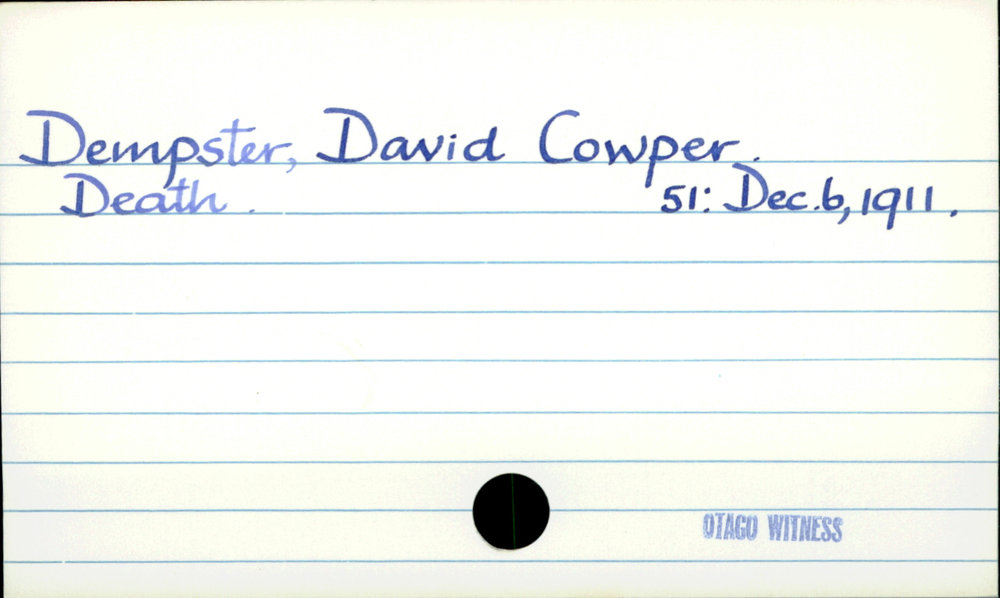 Dempster, David Cowper.
Death. 51: Dec.6, 1911.
OTAGO WITNESS